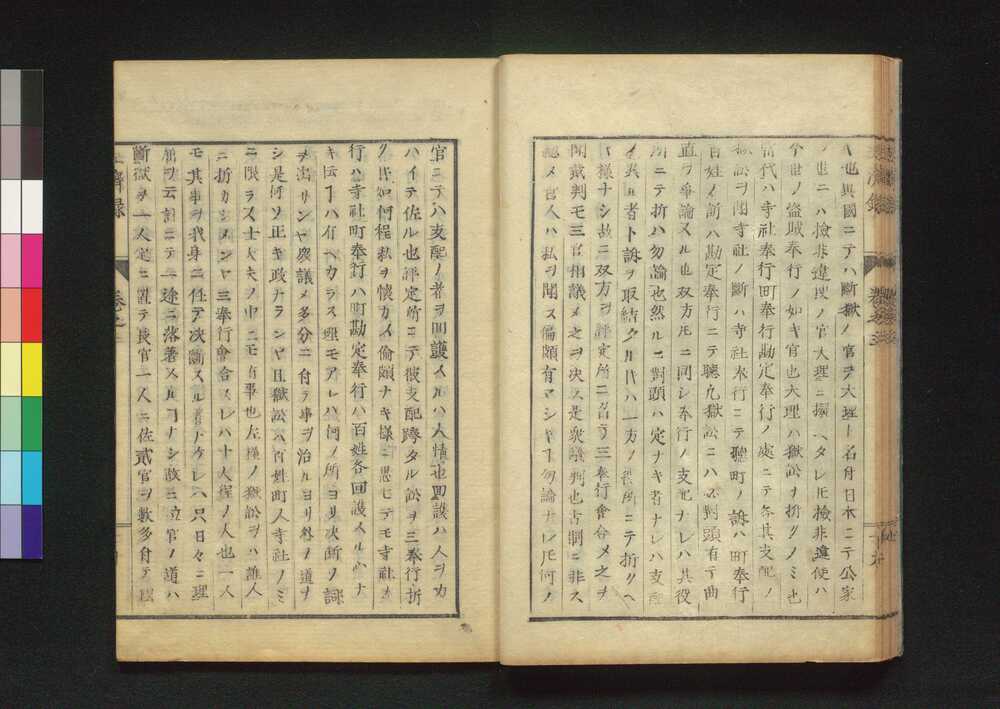 ヘ也異國ニテハ斷獄ノ官ヲ大理ト名付日本ニテ公家
ノ世ニハ檢非違使ノ官大理ニ擬ヘタレ𪜈檢非違使ハ
今世ノ盜賊奉行ノ如キ官也大理ハ獄訟ヲ折クノミ也
當代ハ寺社奉行町奉行勘定奉行ノ處ニテ各其支配ノ
獄訟ヲ聞寺社ノ斷ハ寺社奉行ニテ聽町ノ訴ハ町奉行
百姓ノ訴ハ勘定奉行ニテ聽凡獄訟ニハ必對頭有テ曲
直ヲ爭論スル也双方𪜈ニ同シ奉行ノ支配ナレハ其役
所ニテ折ハ勿論也然ルニ對頭ハ定ナキ者ナレハ支配
異ル者ト訴ヲ取結タル時ハ一方ノ役所ニテ折クヘ
キ樣ナシ故ニ双方ヲ評定所ニ召テ三奉行會合メ之ヲ
聞裁判モ三官相議メ之ヲ決ス是衆議判也古制ニ非ス
認メ官人ハ私ヲ聞ス偏頗有マシキ丁勿論ナレ𪜈何ノ
官ニテハ支配ノ者ヲ回護スルハ人情也回護ハ人ヲカ
ハイテ佐ル也評定所ニテ彼支配跨タル訟ヲ三奉行折
ク時如何程私ヲ懷カス偏頗ナキ樣ニ思ヒテモ寺社奉
行ハ寺社町奉行ハ町勘定奉行ハ百姓各回護スル心ナ
キ丁ハ有ヘカラス理モアレハ何ノ所ヨリ決斷ノ詞
ヲ出サンヤ衆議メ多分ニ付テ事ヲ治ルヨリ外ノ道ヲ
シ是何ソ正キ政ナランヤ且獄訟ハ百姓町人寺社ノミ
ニ限ラス士大夫ノ中ニモ有事也左樣ノ獄訟ヲハ誰人
ニ折カシメンヤ三奉行會合スレハ十人程ノ人也一人
モ其事ヲ我身ニ任テ決斷スル者ナケレハ只日々ニ理
屈ヲ云計ニテ一途ニ落著スル丁ナシ故ニ立官ノ道ハ
斷獄ヲ一人定ニ置テ長官一人ニ佐貳官ヲ數多付テ
經濟錄
卷之三